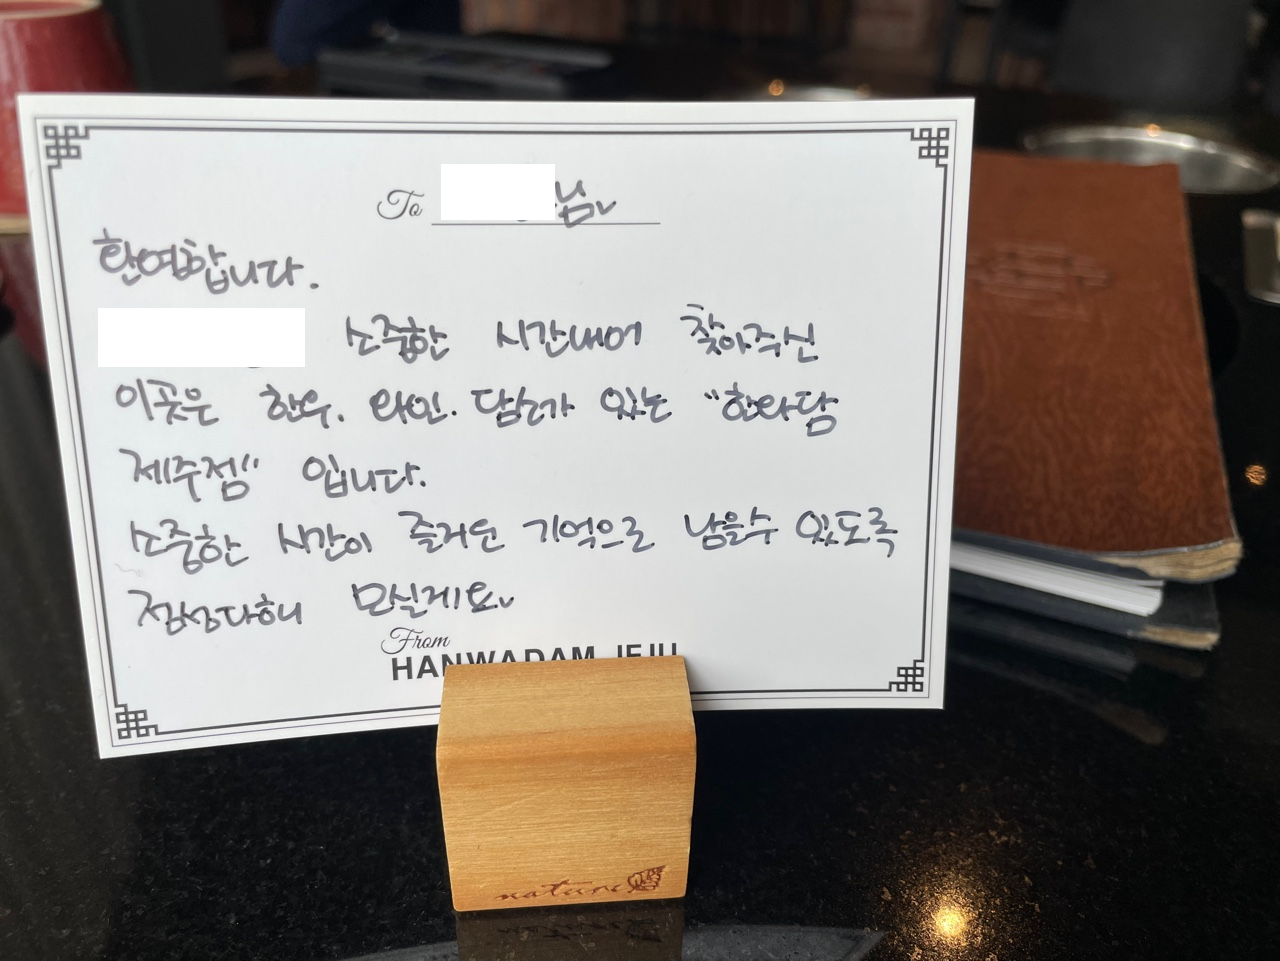 To 님
환영합니다.
소중한 시간내어 찾아주신
이곳은 한우. 와인. 담소가 있는 "한와담
제주점" 입니다.
소중한 시간이 즐거운 기억으로 남을수 있도록
정성다해 모실게요
From
HANWADAM JEJU
nature